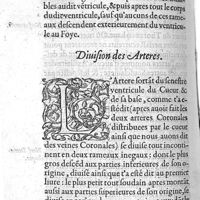 bles audit vétricule, & puis apres tout le corps
dudit ventricule, sauf qu'aucuns de ces rame-
aux descendent exterieurement du ventricu-
le au Foye.
Diuision des Arteres.
L'Artere sortāt du senestre
ventricule du Cueur &
de sa base, comme t'a e-
sté dit (apres auoir fait les
deux arteres Coronales
distribuees par le cueur
ainsi que nous auons dit
des veines Coronales) se diuise tout incontinent
en deux rameaux inegaux: dont le plus gros
descēd aux parties inferieures de son o-
rigine, ainsi diuisé que t'a esté dit au premier
liure: le plus petit tout soudain apres montāt,
aussi aux parties superieures de son origine, se